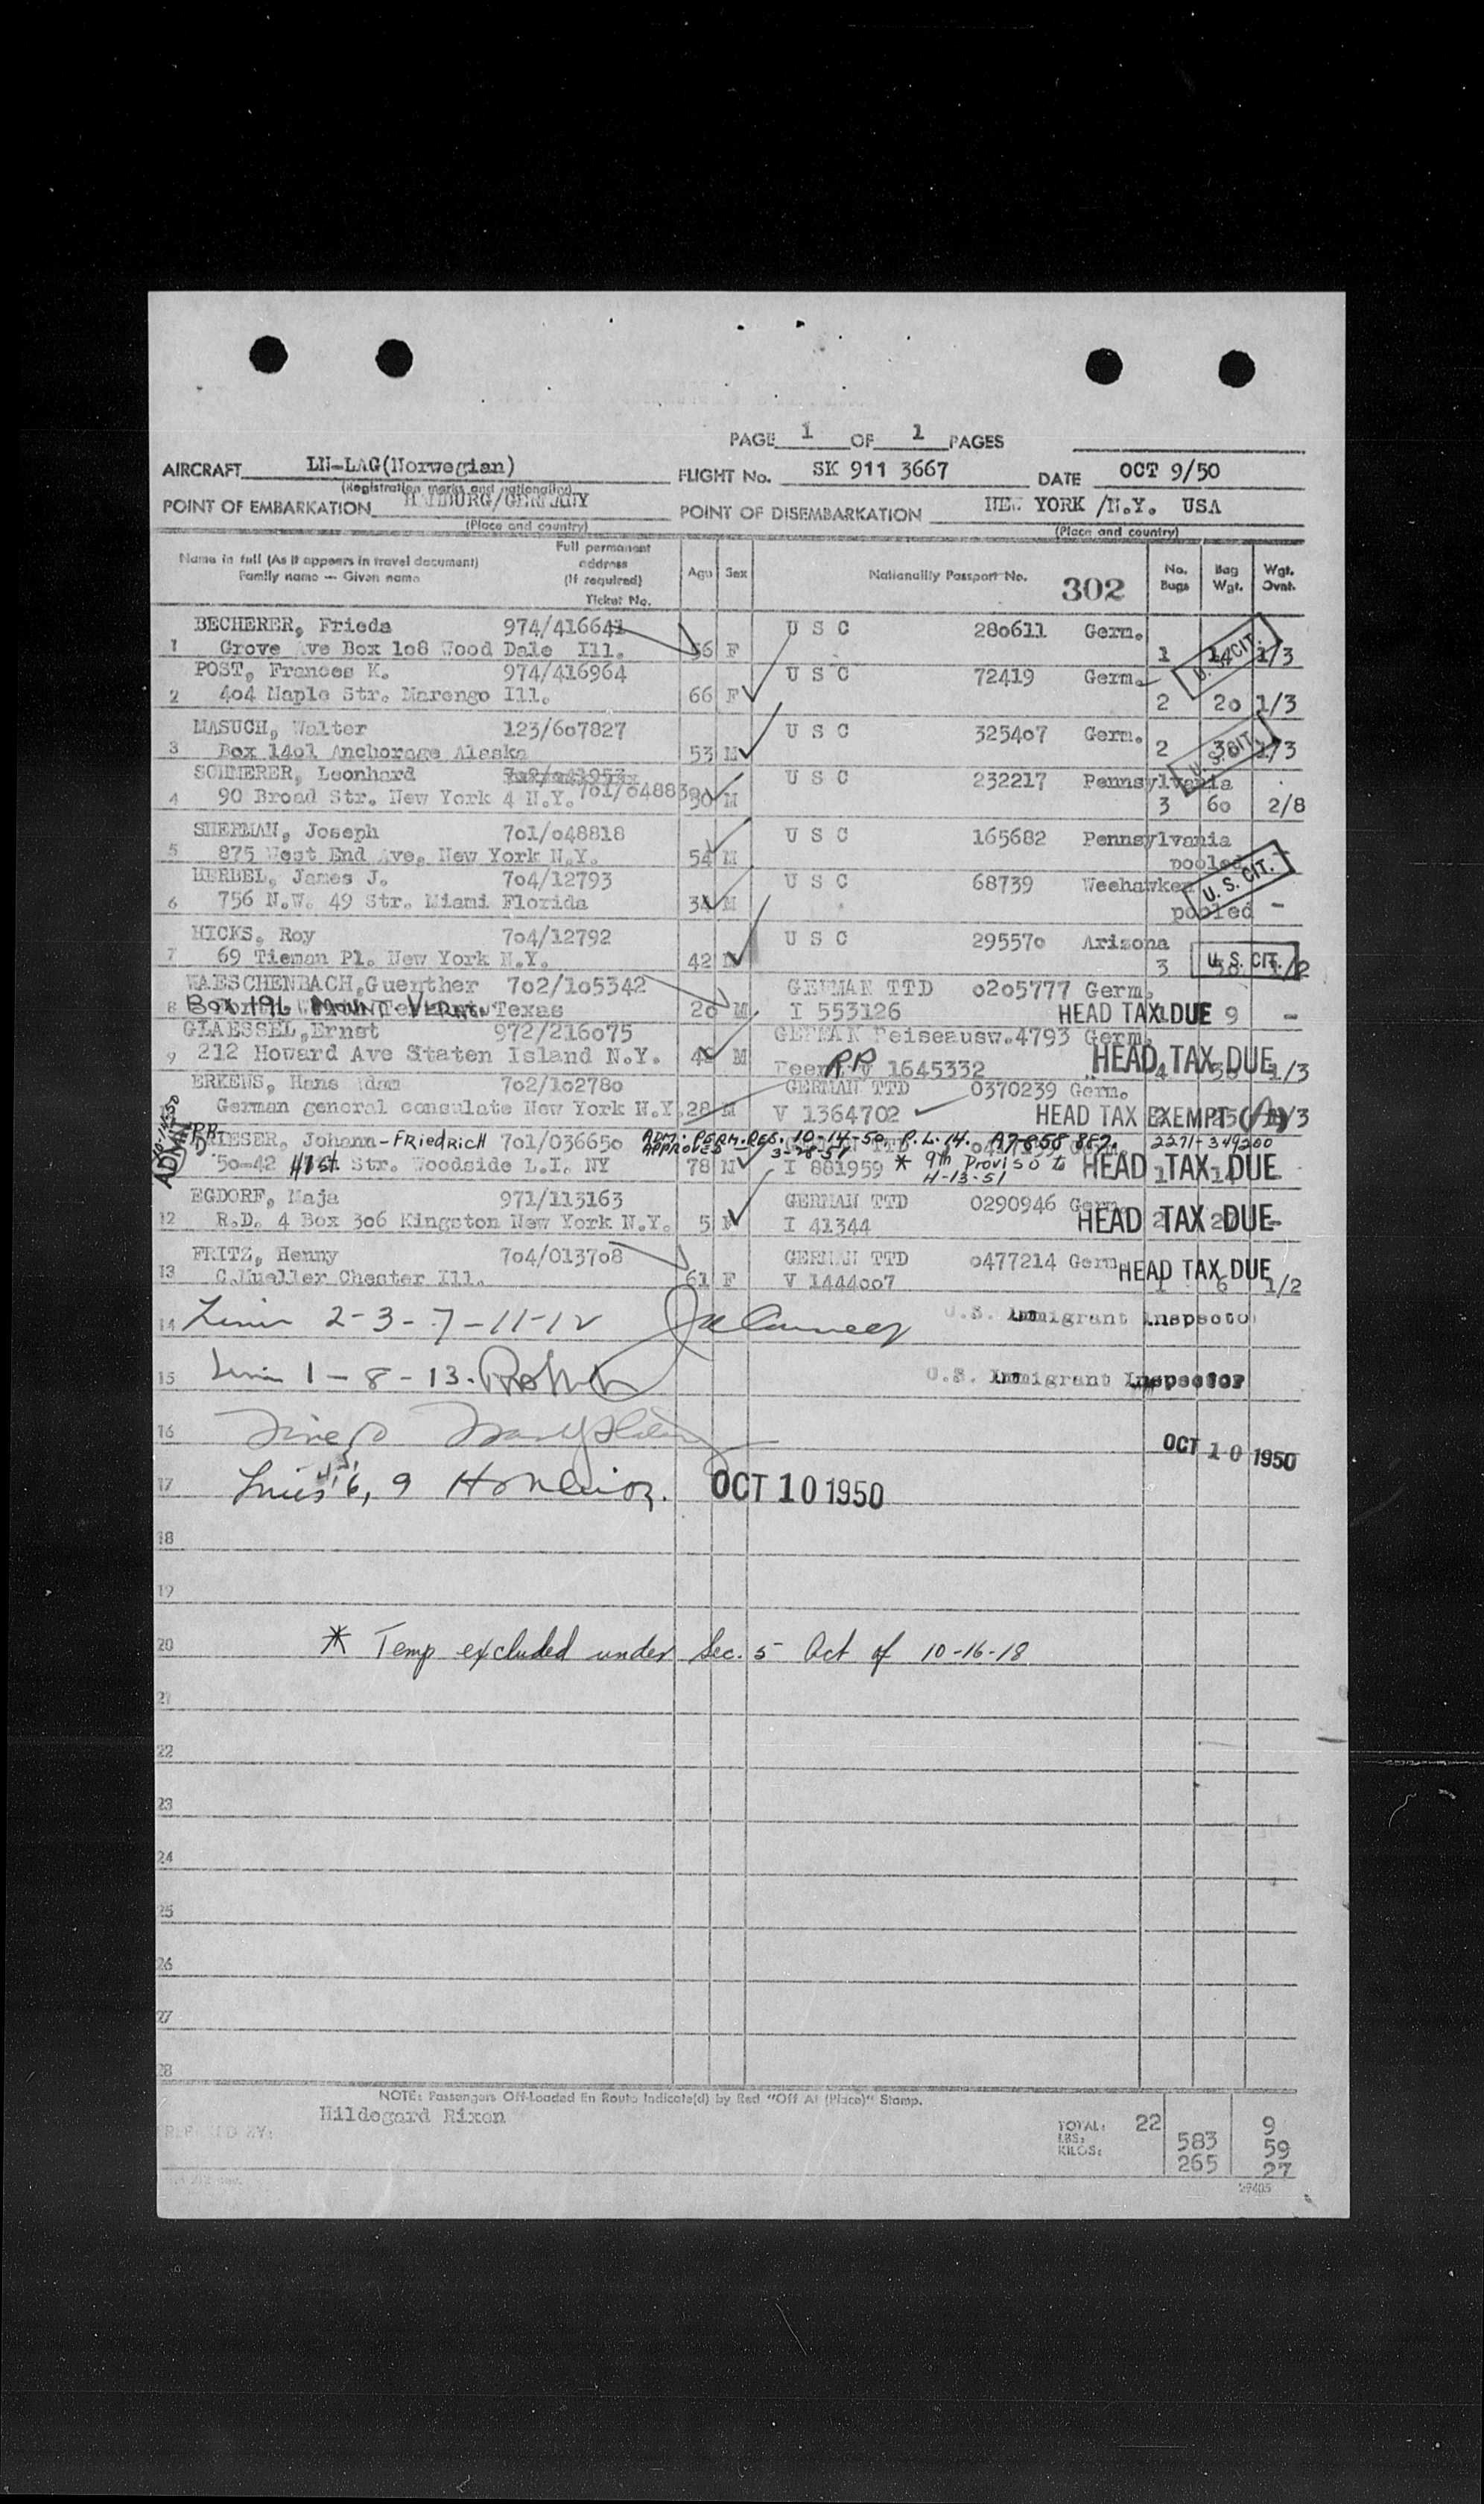 PAGE 1 OF 1 PAGES
AIRCRAFT LN-LAG(Norwegian) FLIGHT No. SK 911 3667 DATE OCT 9/50
(Registration marks and nationality)
POINT OF EMBARKATION HAMBURG/GERMANY POINT OF DISEMBARKATION NEW YORK /N.Y. USA
(Place and country) (Place and country)
Name in full (As it appears in travel document) Family name — Given name Full permanent address (If required) Ticket No. Age Sex Nationality Passport No. 302 No. Bags Bag Wgt. Wgt. Ovnt.
BECHERER, Frieda 974/416641 U S C 280611 Germ.
1 Grove Ave Box 1o8 Wood Dale Ill. 56 F 1 14 1/3 U. S. CIT.
POST, Frances K. 974/416964 U S C 72419 Germ.
2 4o4 Maple Str. Marengo Ill. 66 F 2 2o 1/3
MASUCH, Walter 123/6o7827 U S C 3254o7 Germ.
3 Box 14o1 Anchorage Alaska 53 M 2 38 1/3 U. S. CIT.
SCHMERER, Leonhard U S C 232217 Pennsylvania
4 90 Broad Str. New York 4 N.Y. 7o1/o4883 M 3 6o 2/8
SHERMAN, Joseph 7o1/o48818 U S C 165682 Pennsylvania
5 875 West End Ave. New York N.Y. 54 M pooled -
HERBEL, James J. 7o4/12793 U S C 68739 Weehawken
6 756 N.W. 49 Str. Miami Florida 34 M pooled - U. S. CIT.
HICKS, Roy 7o4/12792 U S C 29557o Arizona
7 69 Tieman Pl. New York N.Y. 42 M 3 1/2 U. S. CIT.
WAESCHENBACH,Guenther 7o2/1o5342 GERMAN TTD o2o5777 Germ.
8 Box 196 MOUNT VERNON Texas 2o M I 553126 HEAD TAX DUE 9 -
GLAESSEL,Ernst 972/216o75 GERMAN Reiseausw.4793 Germ.
9 212 Howard Ave Staten Island N.Y. M RP 1645332 HEAD TAX DUE 4 1/3
ERKENS, Hans Adam 7o2/1o278o GERMAN TTD 0370239 Germ.
German general consulate New York N.Y. 28 M V 1364702 HEAD TAX EXEMPT (A) 1/3
ADMITTED
RIESER, Johann-FRiedRicH 7o1/o3665o ADM. PERM. RES. 10-14-50 P.L. 14. A7 858 857. 2271-349200
APPROVED 3-28-51
50-42 41st Str. Woodside L.I. NY 78 M I 881959 * 9th Proviso to HEAD TAX DUE
4-13-51
EGDORF, Maja 971/113163 GERMAN TTD 0290946 Germ.
12 R.D. 4 Box 3o6 Kingston New York N.Y. 5 F I 41344 HEAD TAX DUE -
FRITZ, Henny 7o4/o137o8 GERMAN TTD o477214 Germ.
13 C.Mueller Chester Ill. 61 F V 1444oo7 HEAD TAX DUE 1 6 1/2
14 2-3-7-11-12 U.S. Immigrant Inspector
15 1-8-13. U.S. Immigrant Inspector
16 OCT 10 1950
17 Lines 4, 5, 6, 9 OCT 10 1950
18
19
20 * Temp excluded under Sec. 5 Act of 10-16-18
21
22
23
24
25
26
27
28
NOTE: Passengers Off-Loaded En Route Indicate(d) by Red "Off At (Place)" Stamp.
PREPARED BY: Hildegard Rixen
TOTAL: 22 9
LBS: 583 59
KILOS: 265 27